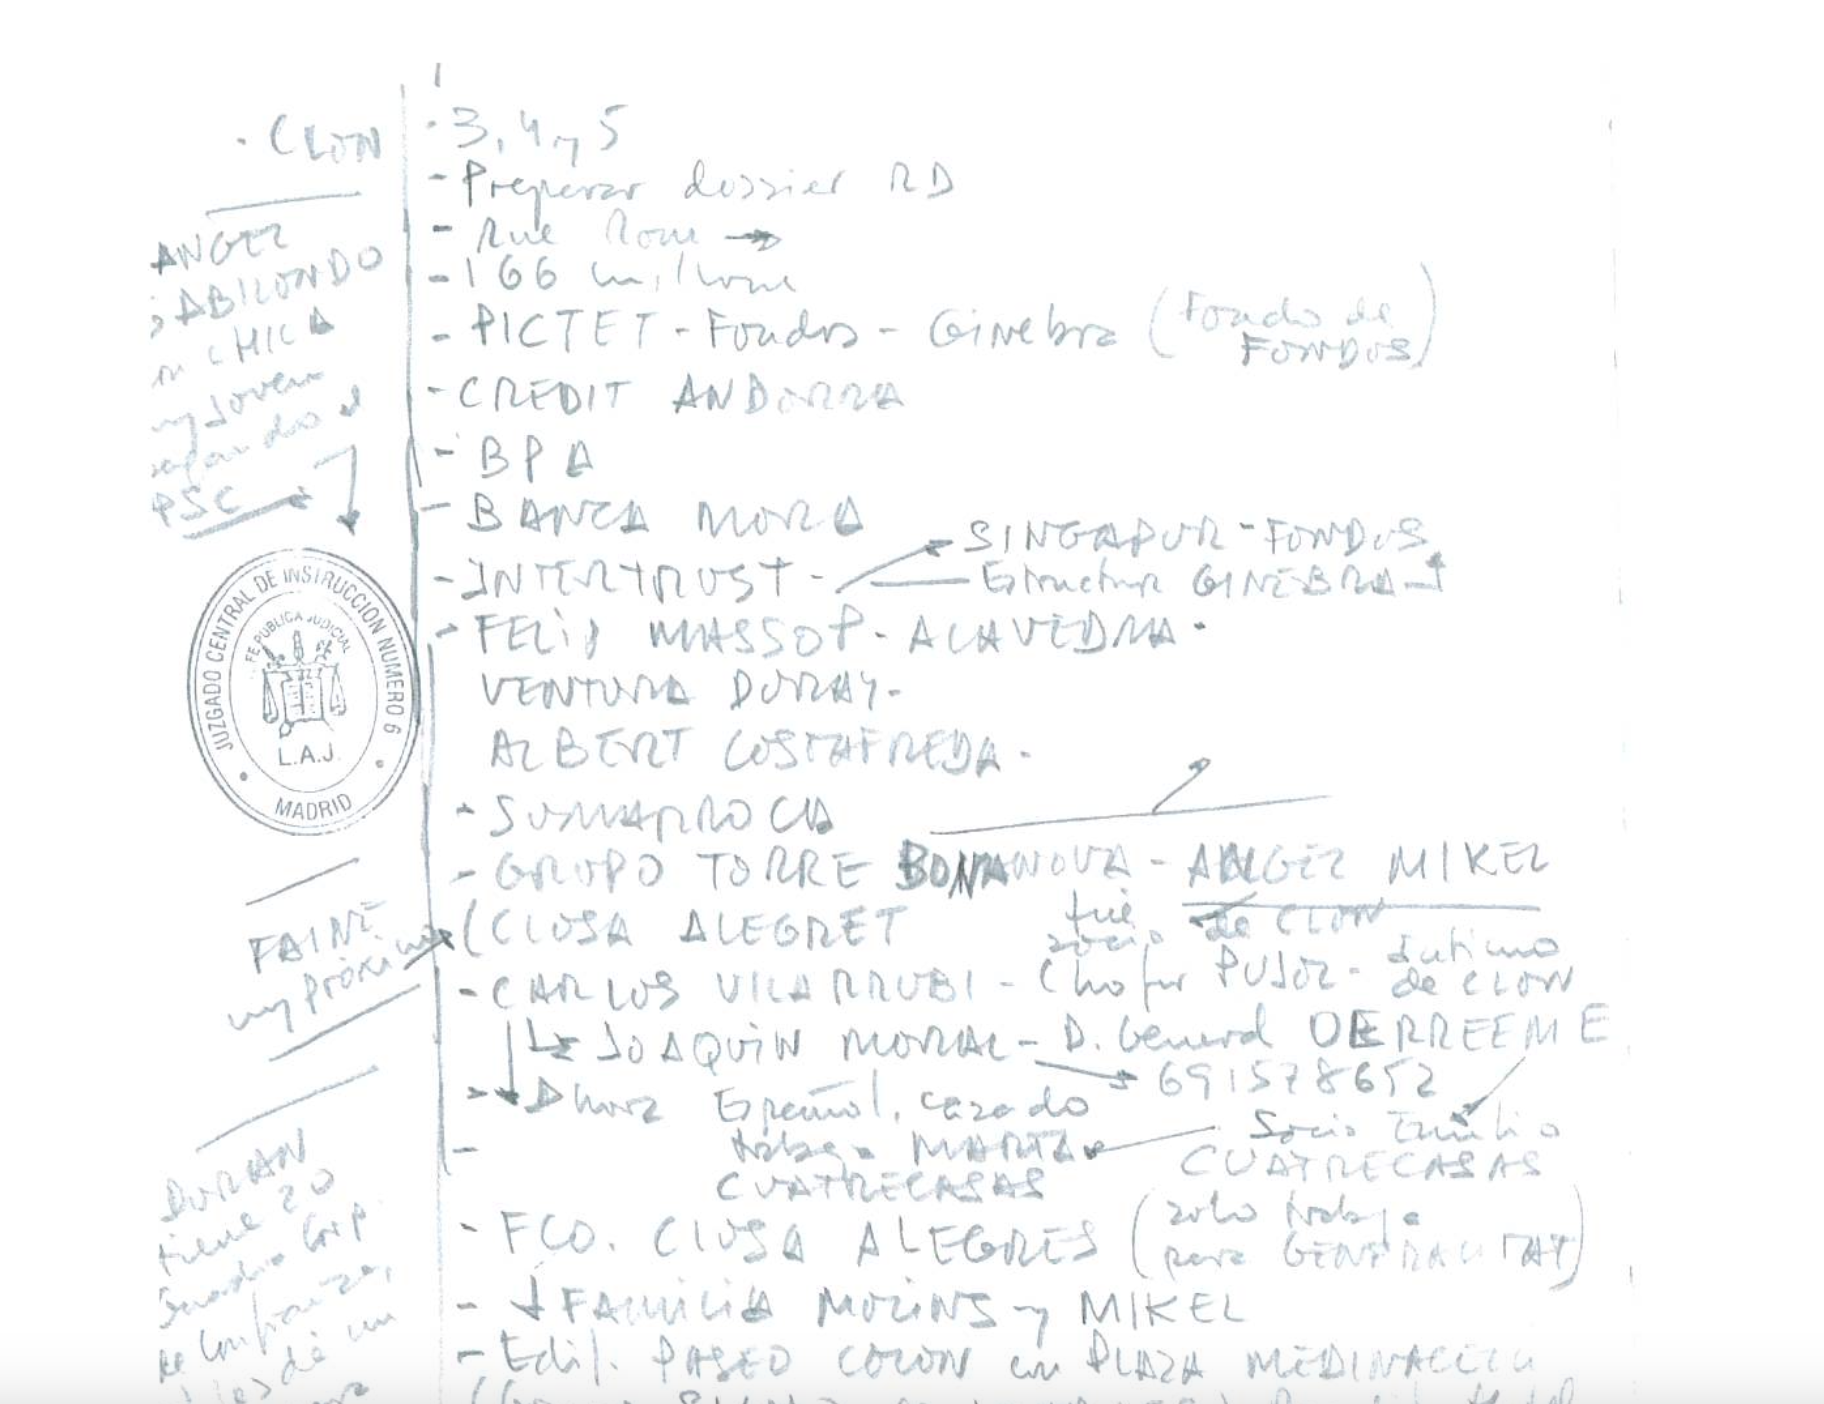 · CLON
· 3, 4 y 5
- Preparar dossier RD
- Rue Rome →
- 166 millone
- PICTET - Fondos - Ginebra (Fondo de
FONDOS)
- CREDIT ANDORRA
- BPA
- BANCA MORA
- INTERTRUST -
SINGAPUR - FONDOS
Estructur GINEBRA
- FELIP MASSOT - ALAVEDRA -
VENTURA DURAY -
ALBERT COSTAFREDA -
- SUMARROCA
- GRUPO TORRE BONANOVA - ANGEL MIKEL
fue
socio de CLON
(CLUSA ALEGRET
- CARLOS VILARRUBI - Chofer PUJOL - intimo
de CLON
JOAQUIN MORAL - D. General DERREEME
→ 691578652
Ahora Español, casado
trabaja MARTA
CUATRECASAS
Socio Emilio
CUATRECASAS
- FCO. CLUSA ALEGRES (solo trabaja
para GENERALITAT)
- FAMILIA MOLINS y MIKEL
- Edif. PASEO COLON en PLAZA MEDINACELI
ANGEL
GABILONDO
CHICA
muy joven
PSC
JUZGADO CENTRAL DE INSTRUCCION NUMERO 6
FE PUBLICA JUDICIAL
L.A.J.
MADRID
FAINÉ
muy próximo
DURAN
tiene 20
Guardia Corp
de confianza,